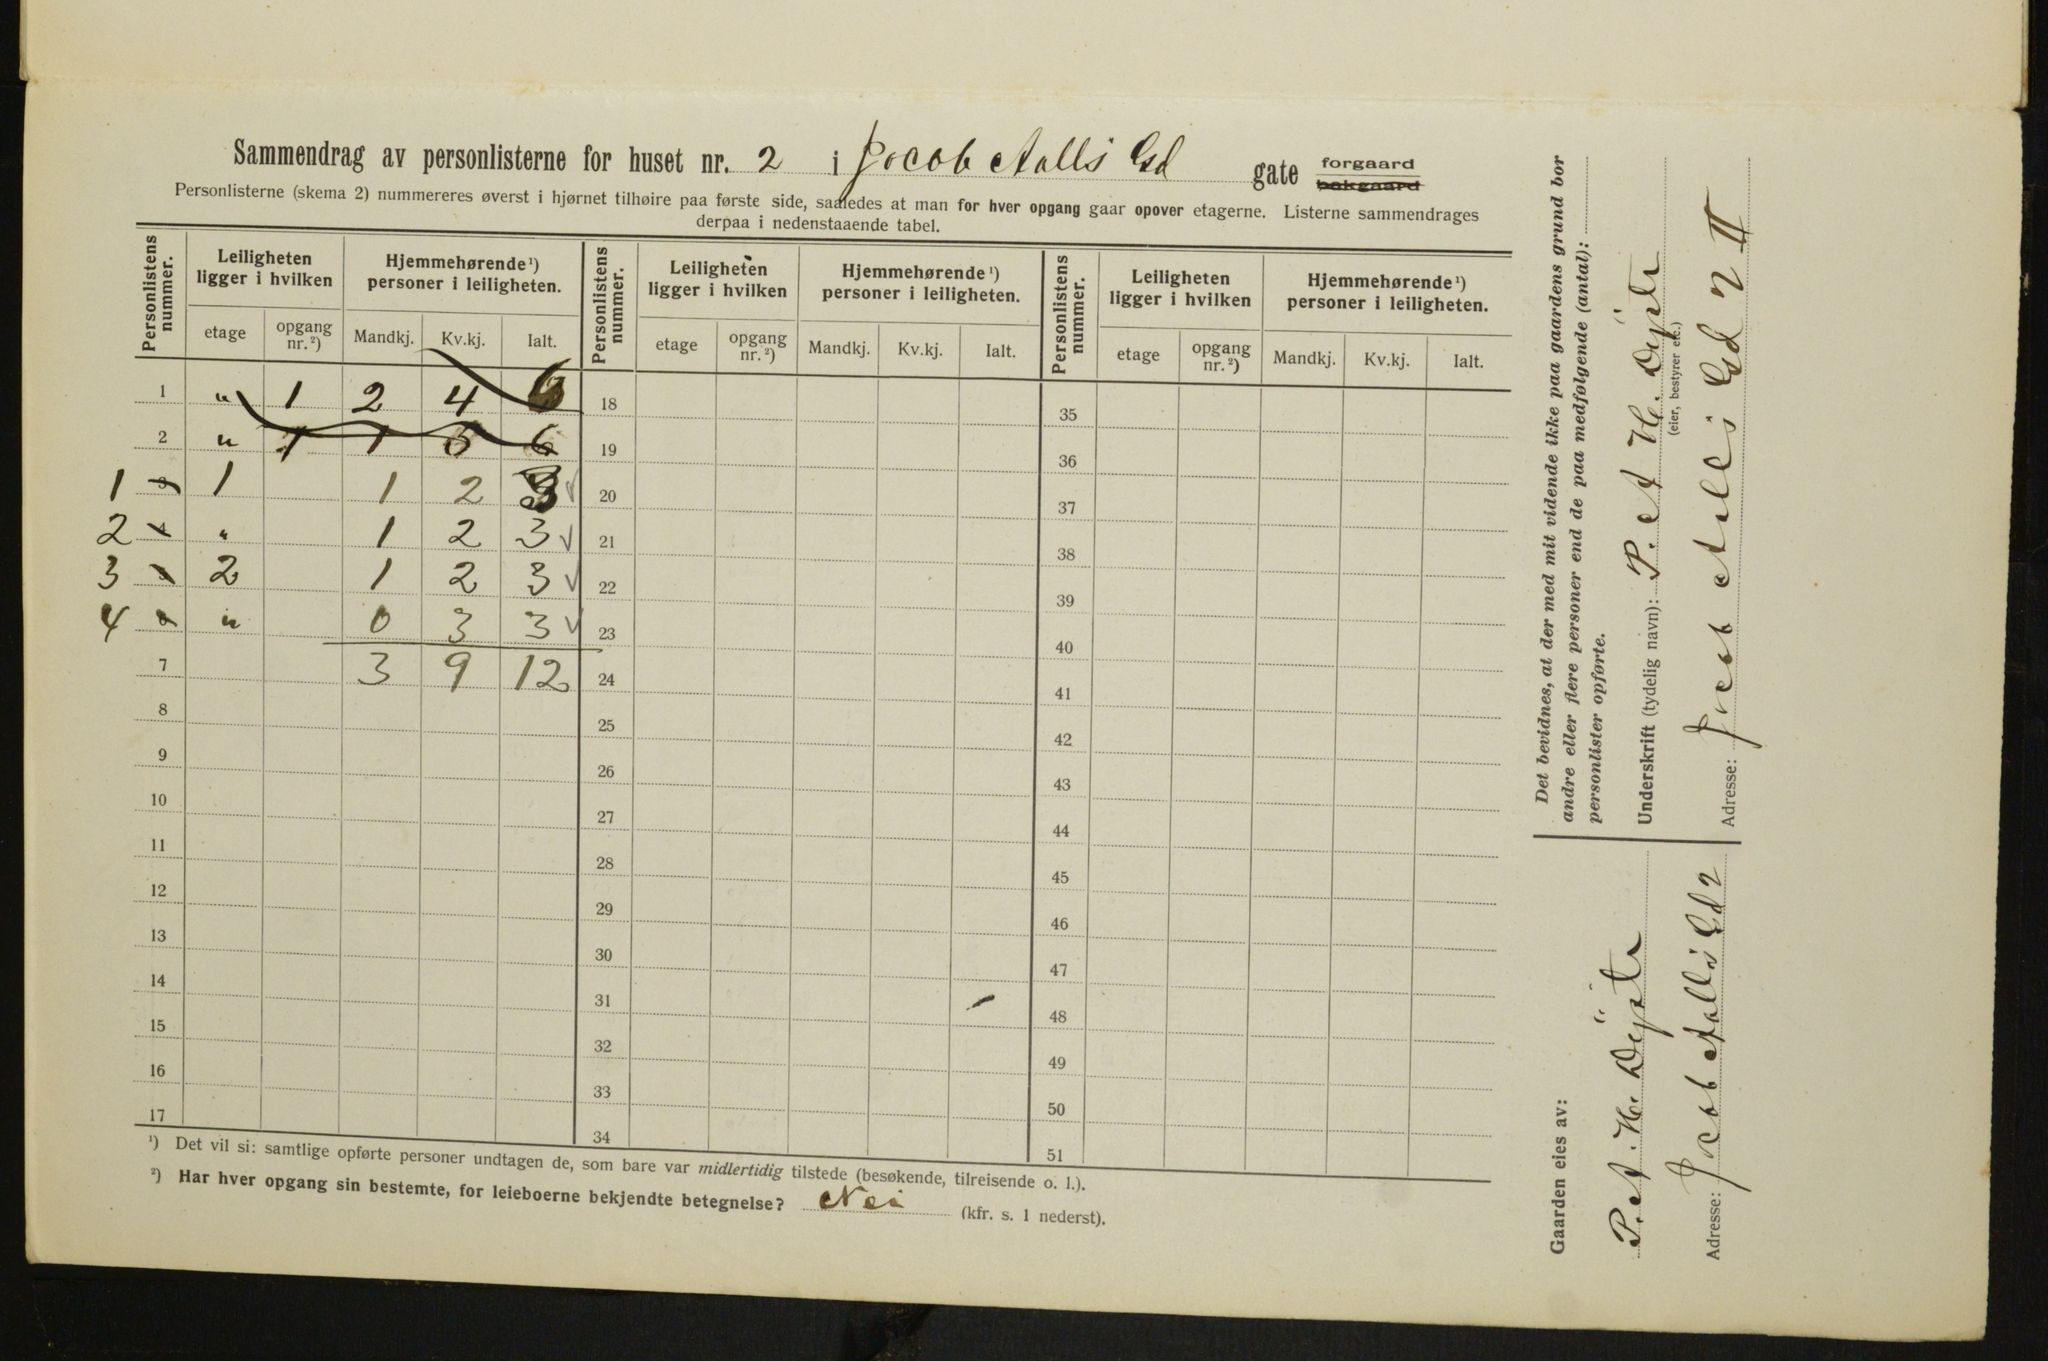 Sammendrag av personlisterne for huset nr. 2 i Jacob Aalls Gd gate forgaard bakgaard
Personlisterne (skema 2) nummereres øverst i hjørnet tilhøire paa første side, saaledes at man for hver opgang gaar opover etagerne. Listerne sammendrages
derpaa i nedenstaaende tabel.
Personlistens nummer. Leiligheten ligger i hvilken Hjemmehørende¹) personer i leiligheten. Personlistens nummer. Leiligheten ligger i hvilken Hjemmehørende¹) personer i leiligheten. Personlistens nummer. Leiligheten ligger i hvilken Hjemmehørende¹) personer i leiligheten.
etage opgang nr.²) Mandkj. Kv.kj. Ialt. etage opgang nr.²) Mandkj. Kv.kj. Ialt. etage opgang nr.²) Mandkj. Kv.kj. Ialt.
1 " 1 2 4 6 18 35
2 " 1 1 5 6 19 36
1 3 1 1 2 3 20 37
2 4 " 1 2 3 21 38
3 5 2 1 2 3 22 39
4 6 " 0 3 3 23 40
7 3 9 12 24 41
8 25 42
9 26 43
10 27 44
11 28 45
12 29 46
13 30 47
14 31 48
15 32 49
16 33 50
17 34 51
¹) Det vil si: samtlige opførte personer undtagen de, som bare var midlertidig tilstede (besøkende, tilreisende o. l.).
²) Har hver opgang sin bestemte, for leieboerne bekjendte betegnelse? Nei (kfr. s. 1 nederst).
Det bevidnes, at der med mit vidende ikke paa gaardens grund bor
andre eller flere personer end de paa medfølgende (antal):
personlister opførte.
Underskrift (tydelig navn): P. A. H.
(eier, bestyrer etc.)
Adresse: Jacob Aalls Gd 2 II
Gaarden eies av:
P. A. H.
Adresse: Jacob Aalls Gd 2